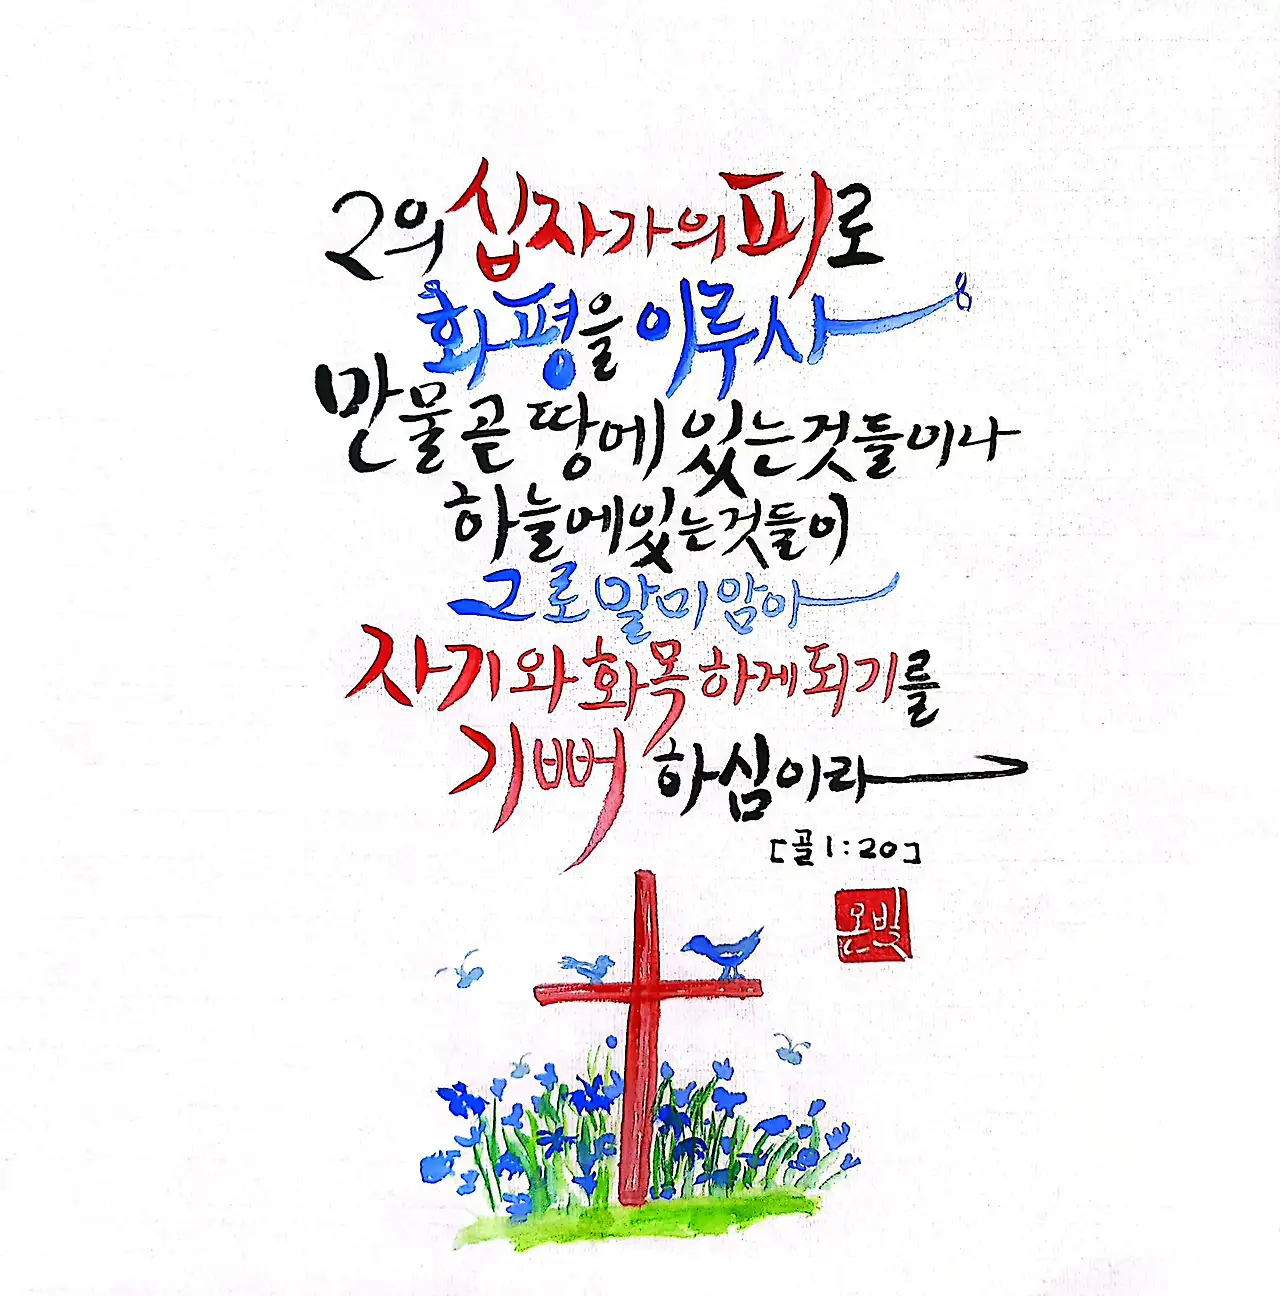 그의 십자가의 피로
화평을 이루사
만물 곧 땅에 있는것들이나
하늘에있는것들이
그로말미암아
자기와화목하게되기를
기뻐 하심이라
[골1:20]
온빛